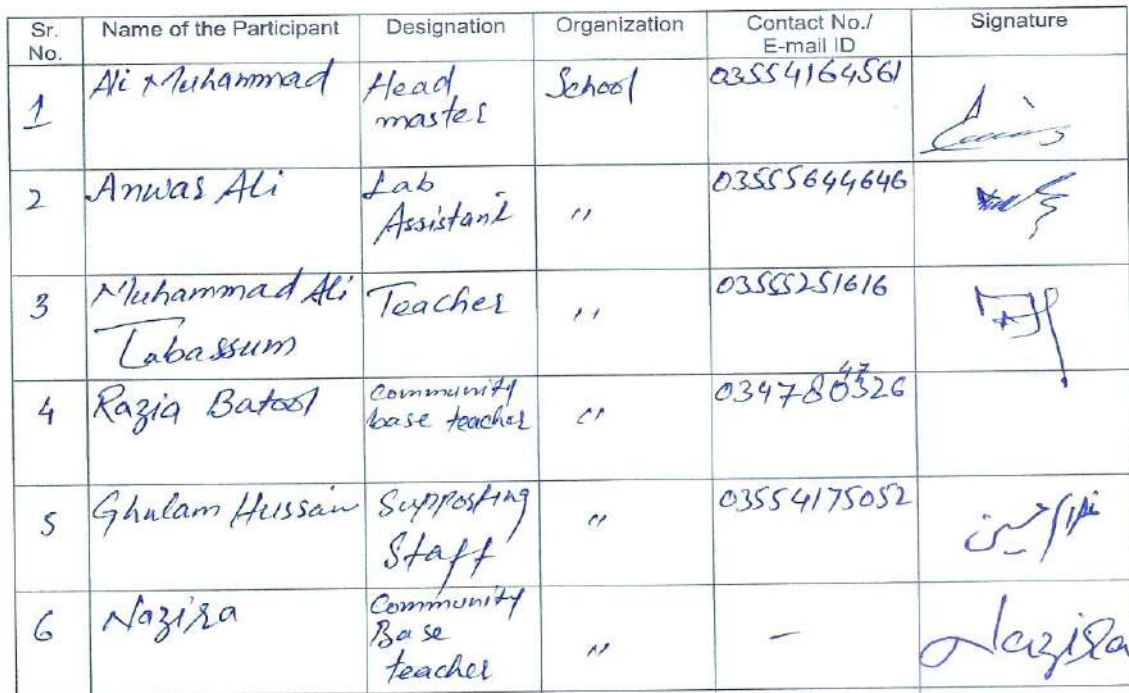 Sr. No. Name of the Participant Designation Organization Contact No./ E-mail ID Signature
1 Ali Muhammad Head master School 03554164561
2 Anwar Ali Lab Assistant " 03555644646
3 Muhammad Ali Tabassum Teacher " 03555251616
4 Razia Batool Community base teacher "
5 Ghulam Hussain Supporting Staff " 03554175052 غلام حسین
6 Nazira Community Base teacher " – Nazira